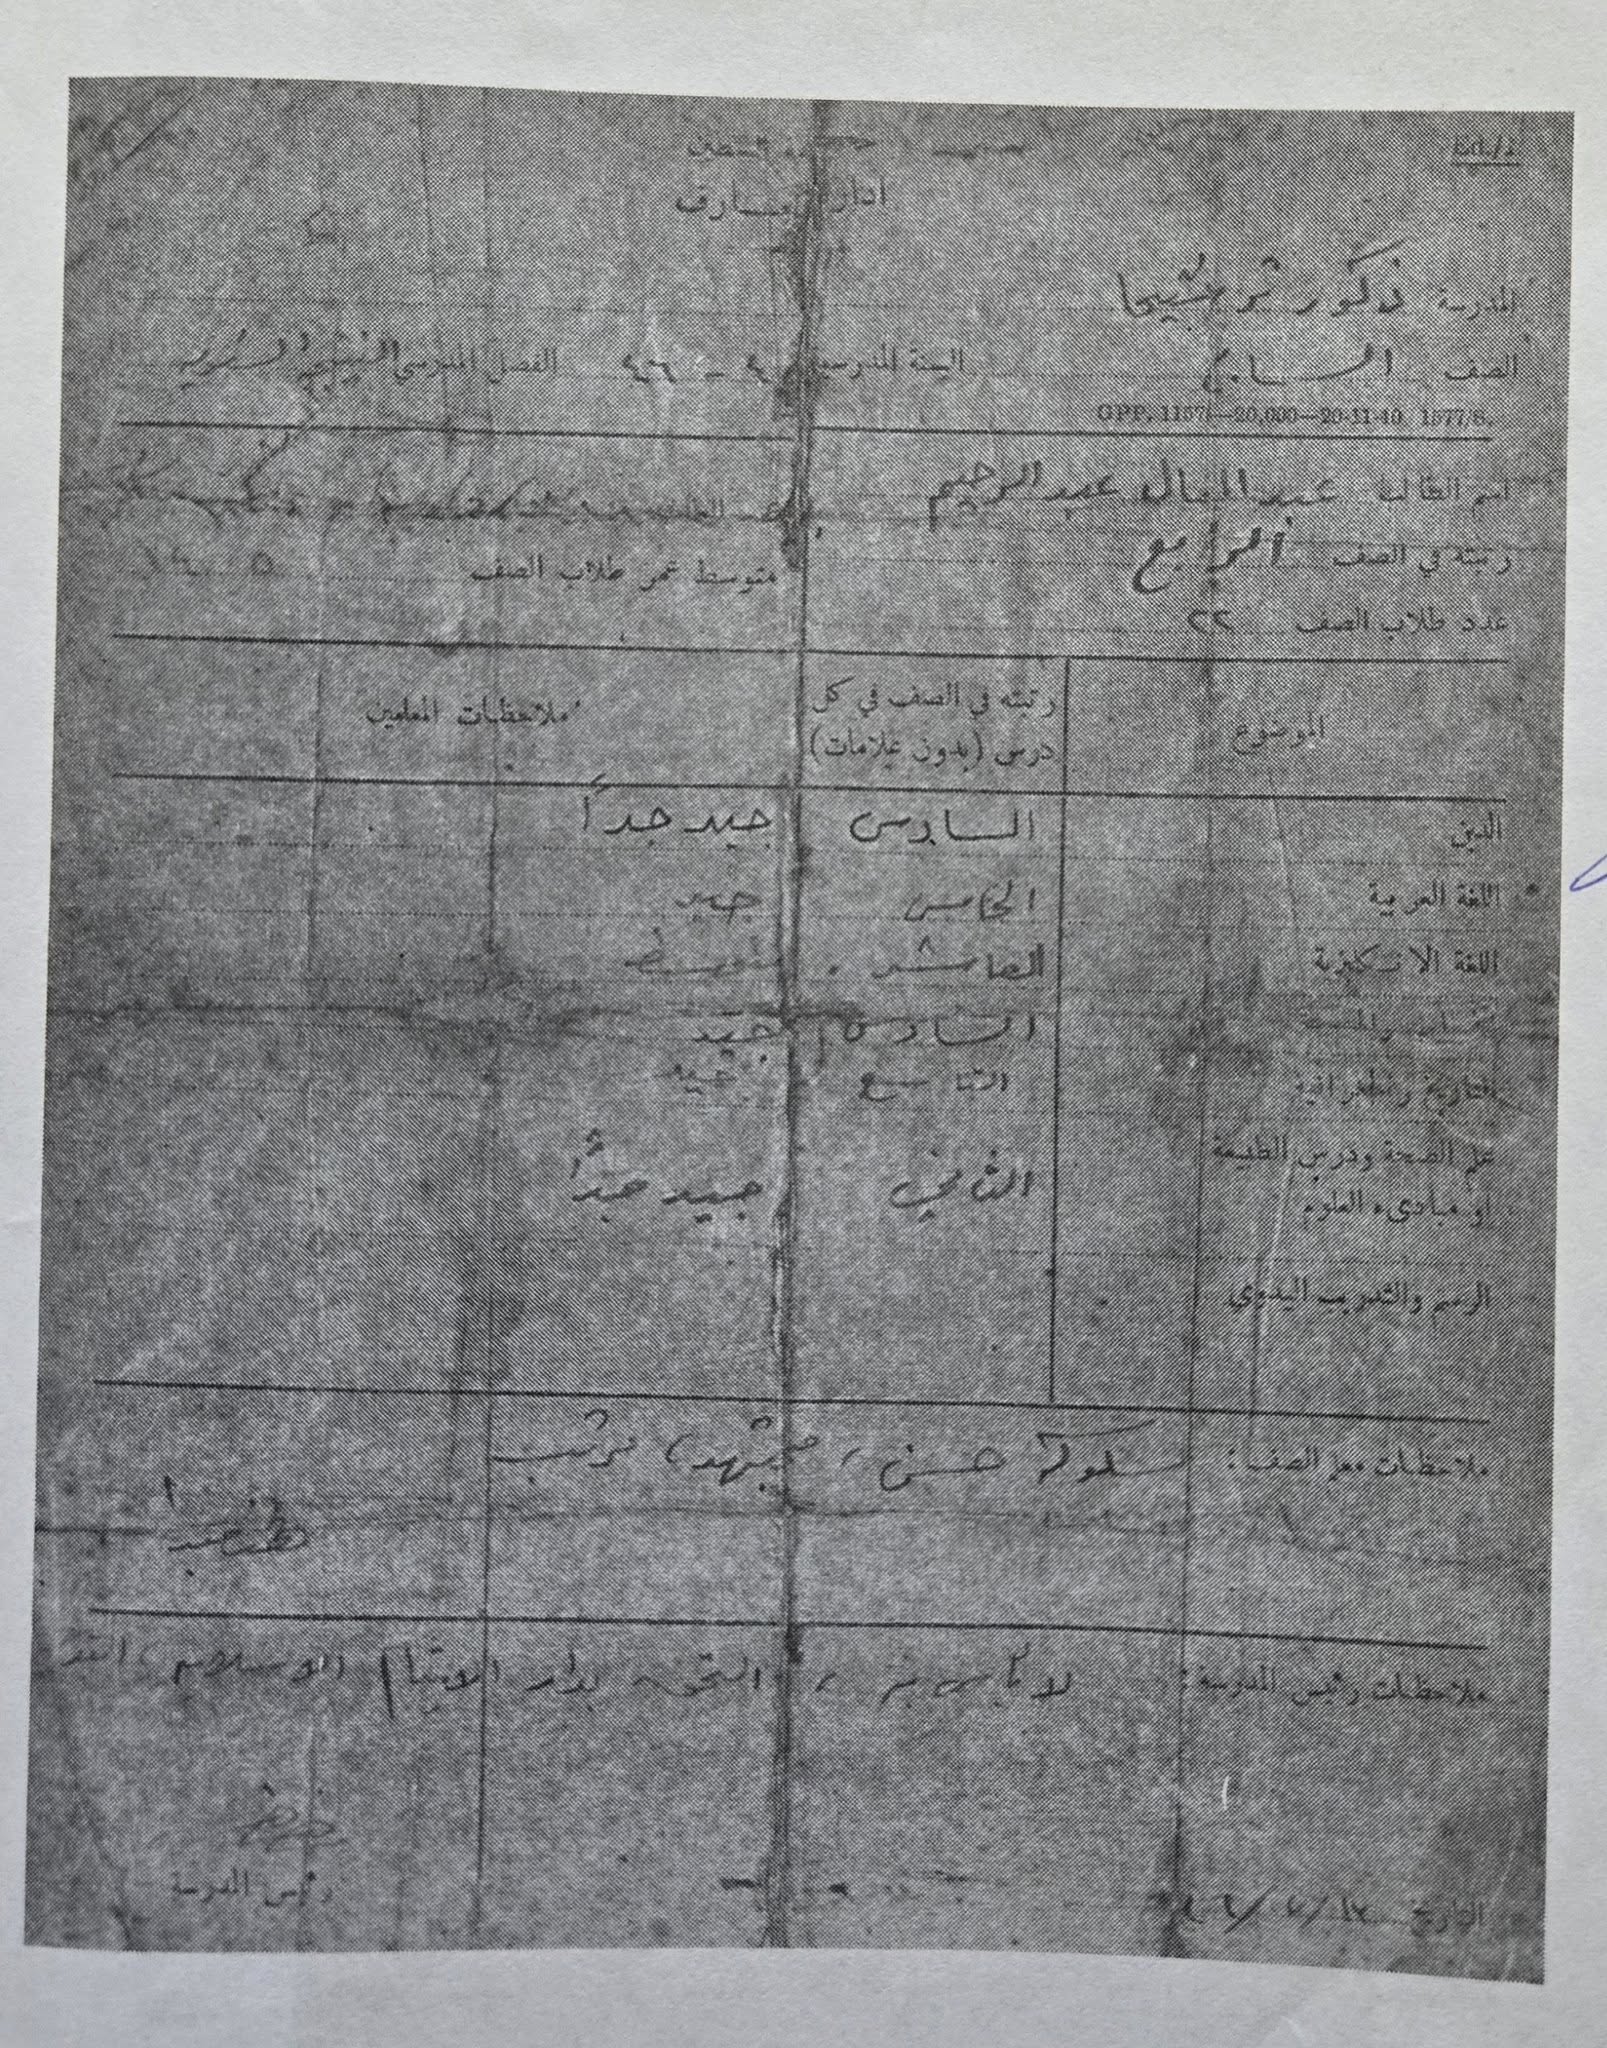 Ed./1
حكومة فلسطين
ادارة المعارف
المدرسة ذكور ترشيحا
الصف السابع السنة المدرسية ٤٥ - ٤٦ الفصل المدرسي
GPP. 1157—20,000—20-11-40 1577/8.
اسم الطالب عبد العال عبد الرحيم
رتبته في الصف الرابع متوسط عمر طلاب الصف
عدد طلاب الصف ٢٢
الموضوع رتبته في الصف في كل درس (بدون علامات) ملاحظات المعلمين
الدين السادس جيد جداً
اللغة العربية الخامس جيد
اللغة الانكليزية العاشر متوسط
السادس جيد
التاريخ والجغرافية التاسع جيد
علم الصحة ودرس الطبيعة
او مبادىء العلوم الثاني جيد جداً
الرسم والتدريب اليدوي
ملاحظات معلم الصف : سلوكه حسن، مجتهد، مرتب
ملاحظات رئيس المدرسة : لا بأس به، التحق بدار الايتام الاسلامية
رئيس المدرسة
التاريخ